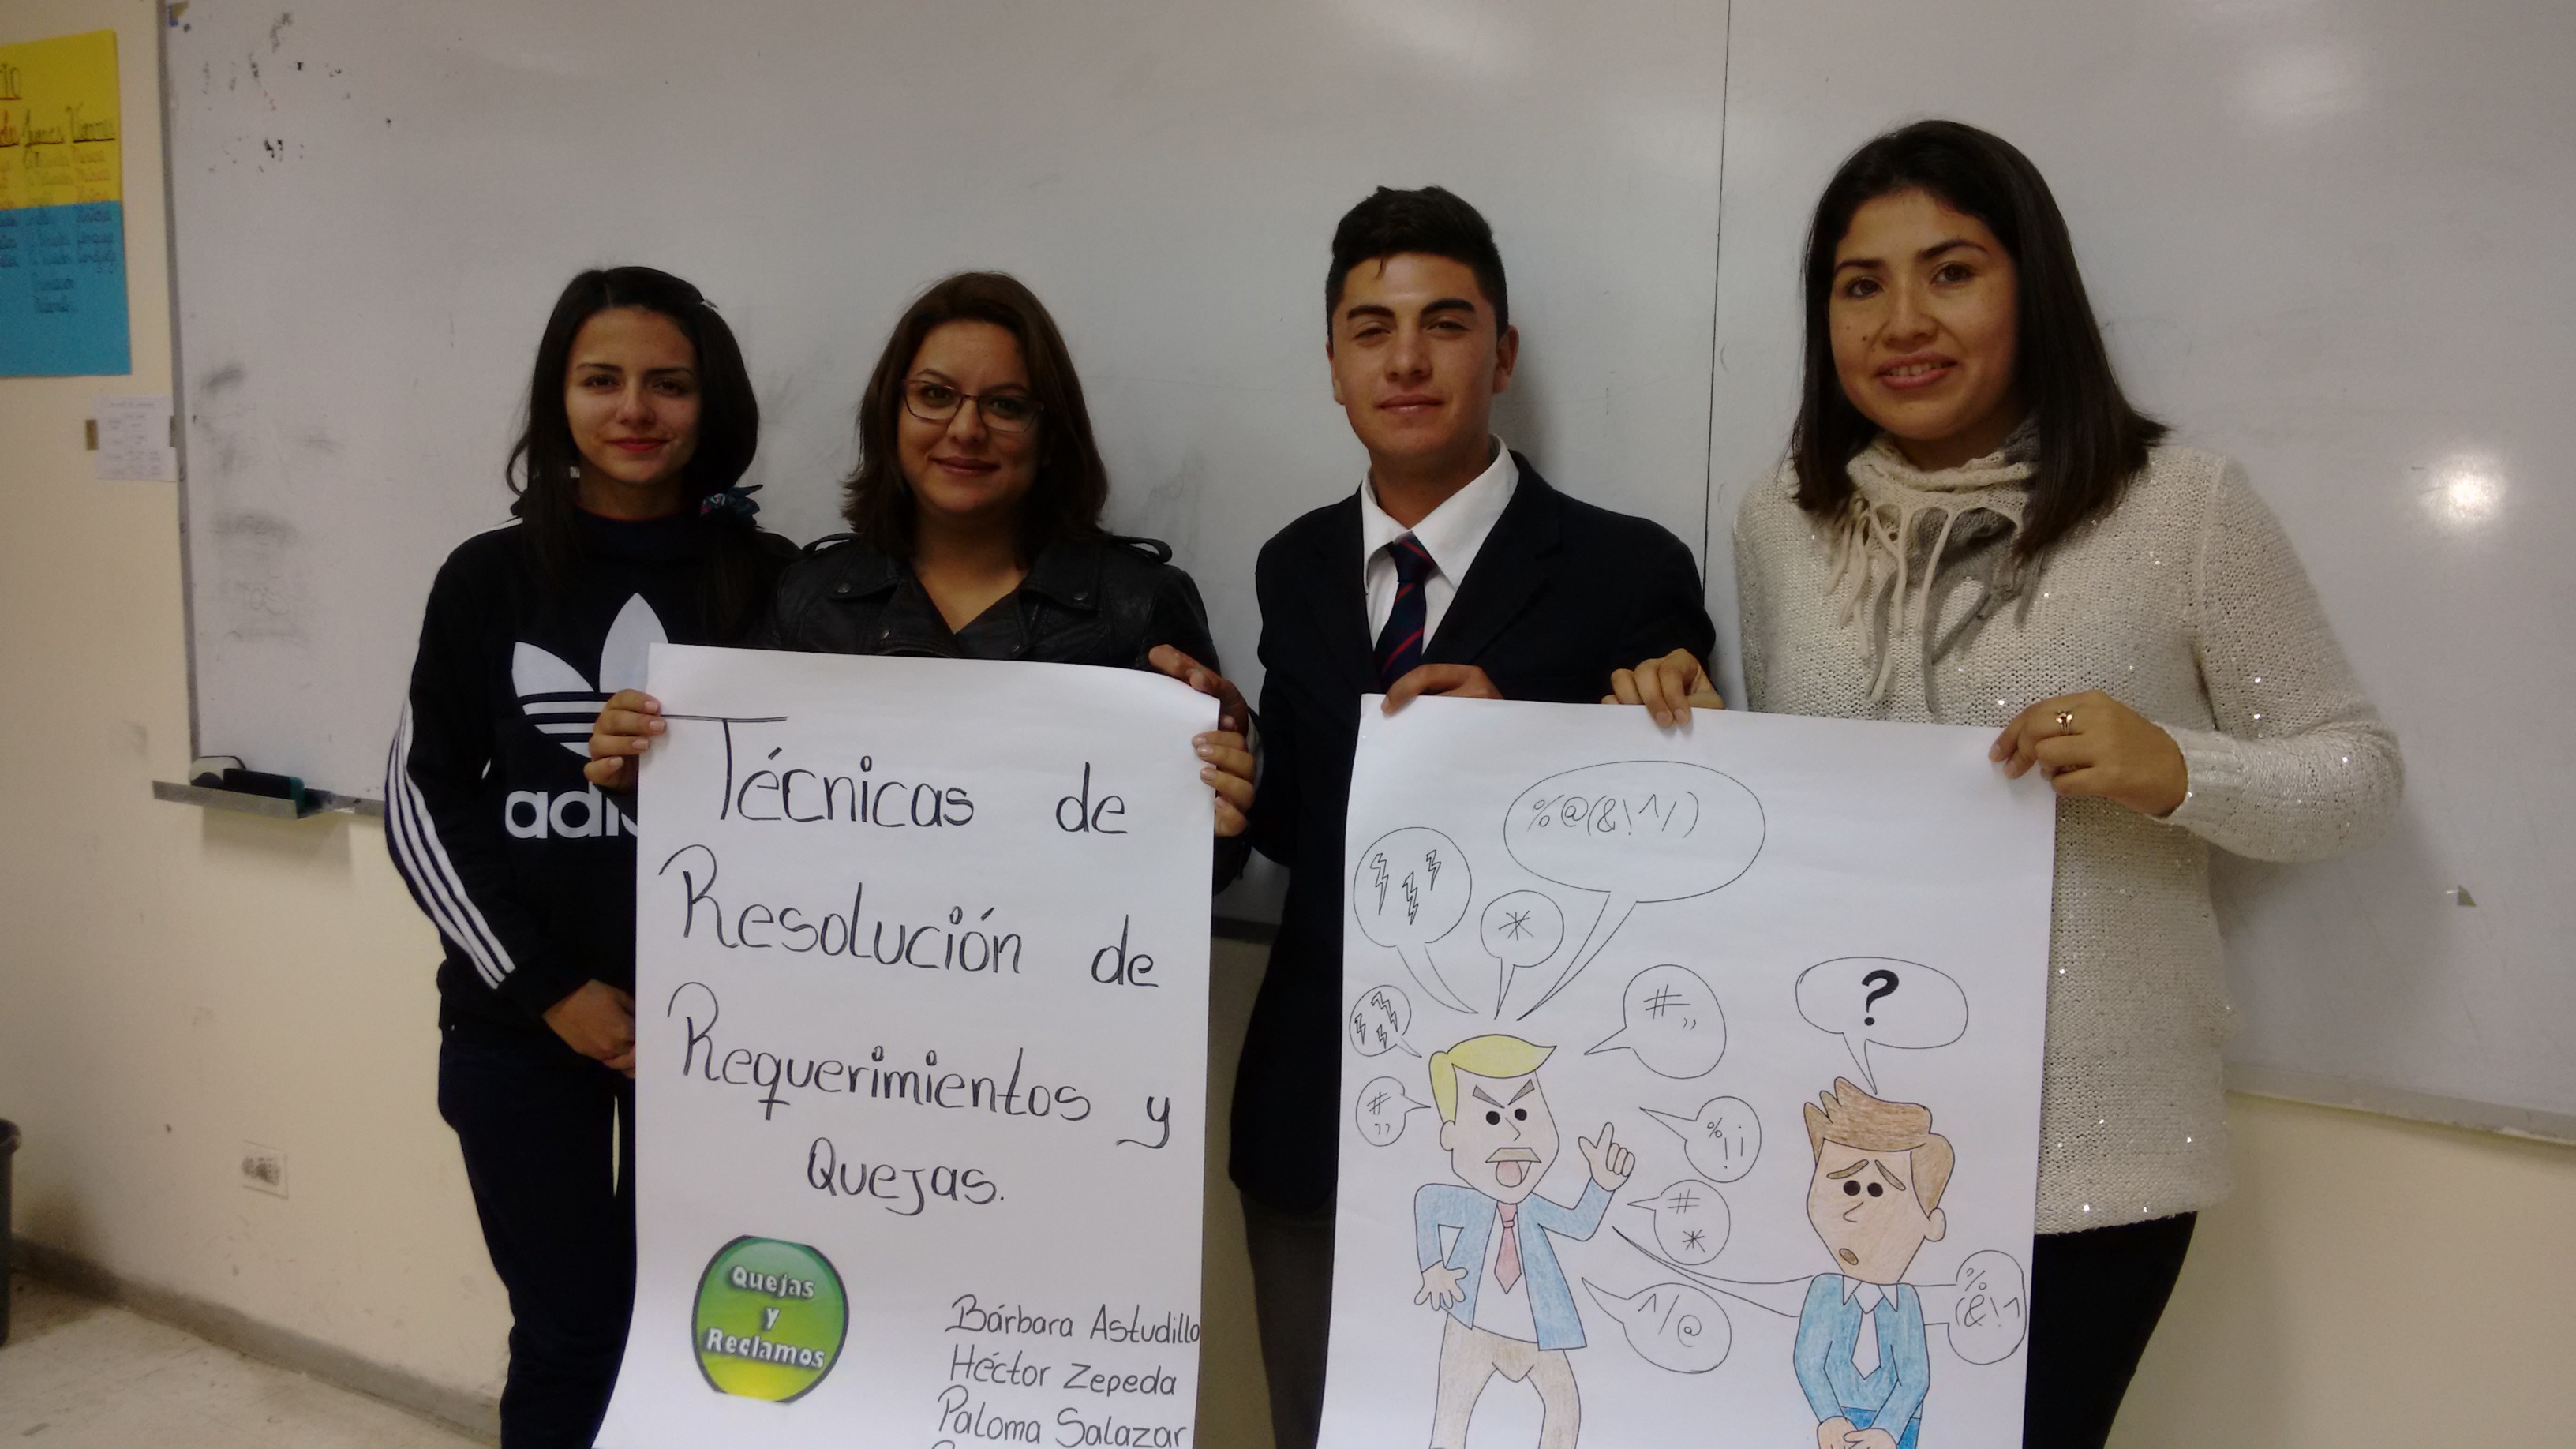 Jueves Viernes
adi
Técnicas de
Resolución de
Requerimientos y
Quejas.
Quejas
y
Reclamos
Bárbara Astudillo
Héctor Zepeda
Paloma Salazar
%@(&!^/)
*
#,,
#
,,
%
!¡
#
*
^/@
%
(&!^
?